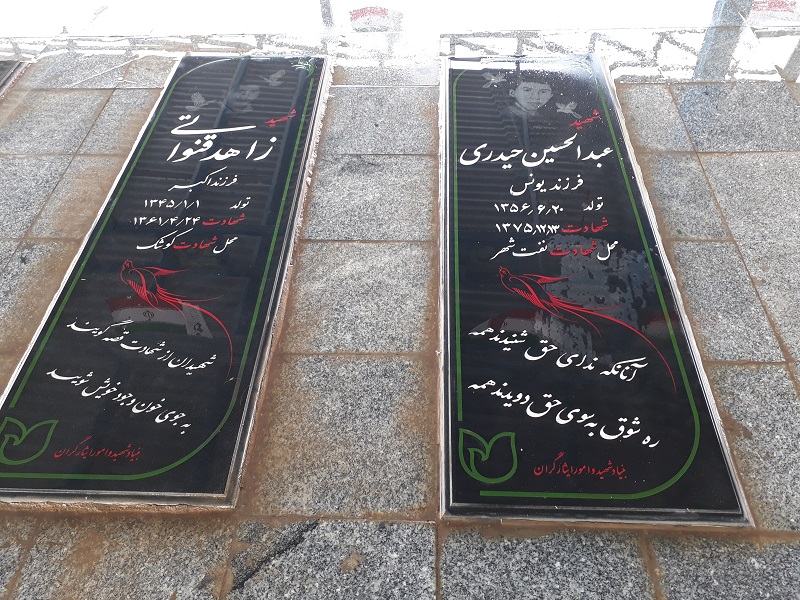 شهید
عبدالحسین حیدری
فرزند یونس
تولد ۱۳۵۶/۶/۲۰
شهادت ۱۳۷۵/۱۲/۳
محل شهادت نفت شهر
آنانکه ندای حق شنیدند همه
ره شوق به سوی حق دویدند همه
بنیاد شهید و امور ایثارگران
شهید
زاهد قنواتی
فرزند اکبر
تولد ۱۳۴۵/۱/۱
شهادت ۱۳۶۱/۴/۲۴
محل شهادت کوشک
شهیدان از شهادت قصه گویند
به جوی خون وجود خویش شویند
بنیاد شهید و امور ایثارگران